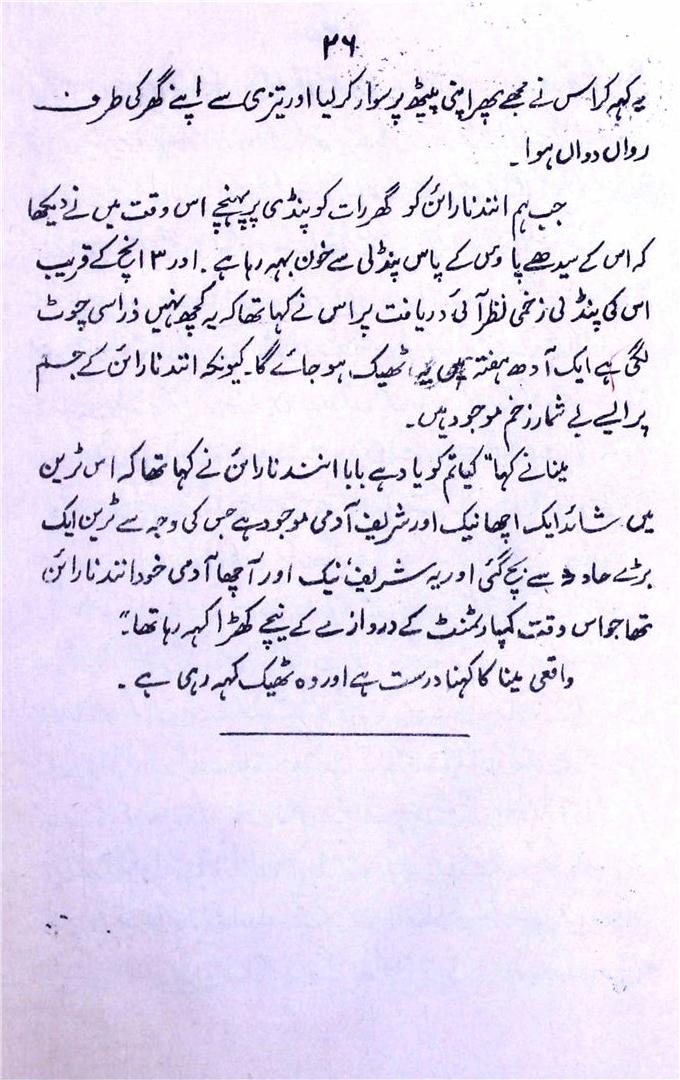 ۲۶
یہ کہہ کر اس نے مجھے پھر اپنی پیٹھ پر سوار کر لیا اور تیزی سے اپنے گھر کی طرف
رواں دواں ہوا۔
جب ہم انند نارائن کو گھر رات کو پنڈی پر پہنچے اس وقت میں نے دیکھا
کہ اس کے سیدھے پاؤں کے پاس پنڈلی سے خون بہہ رہا ہے۔ اور ۳ انچ کے قریب
اس کی پنڈلی زخمی نظر آئی دریافت پر اس نے کہا تھا کہ یہ کچھ نہیں ذراسی چوٹ
لگی ہے ایک آدھ ہفتہ میں یہ ٹھیک ہو جائے گا۔ کیونکہ انند نارائن کے جسم
پر ایسے بے شمار زخم موجود ہیں۔
مینا نے کہا "کیا تم کو یاد ہے بابا انند نارائن نے کہا تھا کہ اس ٹرین
میں شائد ایک اچھا نیک اور شریف آدمی موجود ہے جس کی وجہ سے ٹرین ایک
بڑے حادثے سے بچ گئی اور یہ شریف نیک اور آچھا آدمی خود انند نارائن
تھا جو اس وقت کمپارٹمنٹ کے دروازے کے نیچے کھڑا کہہ رہا تھا۔"
واقعی مینا کا کہنا درست ہے اور وہ ٹھیک کہہ رہی ہے۔